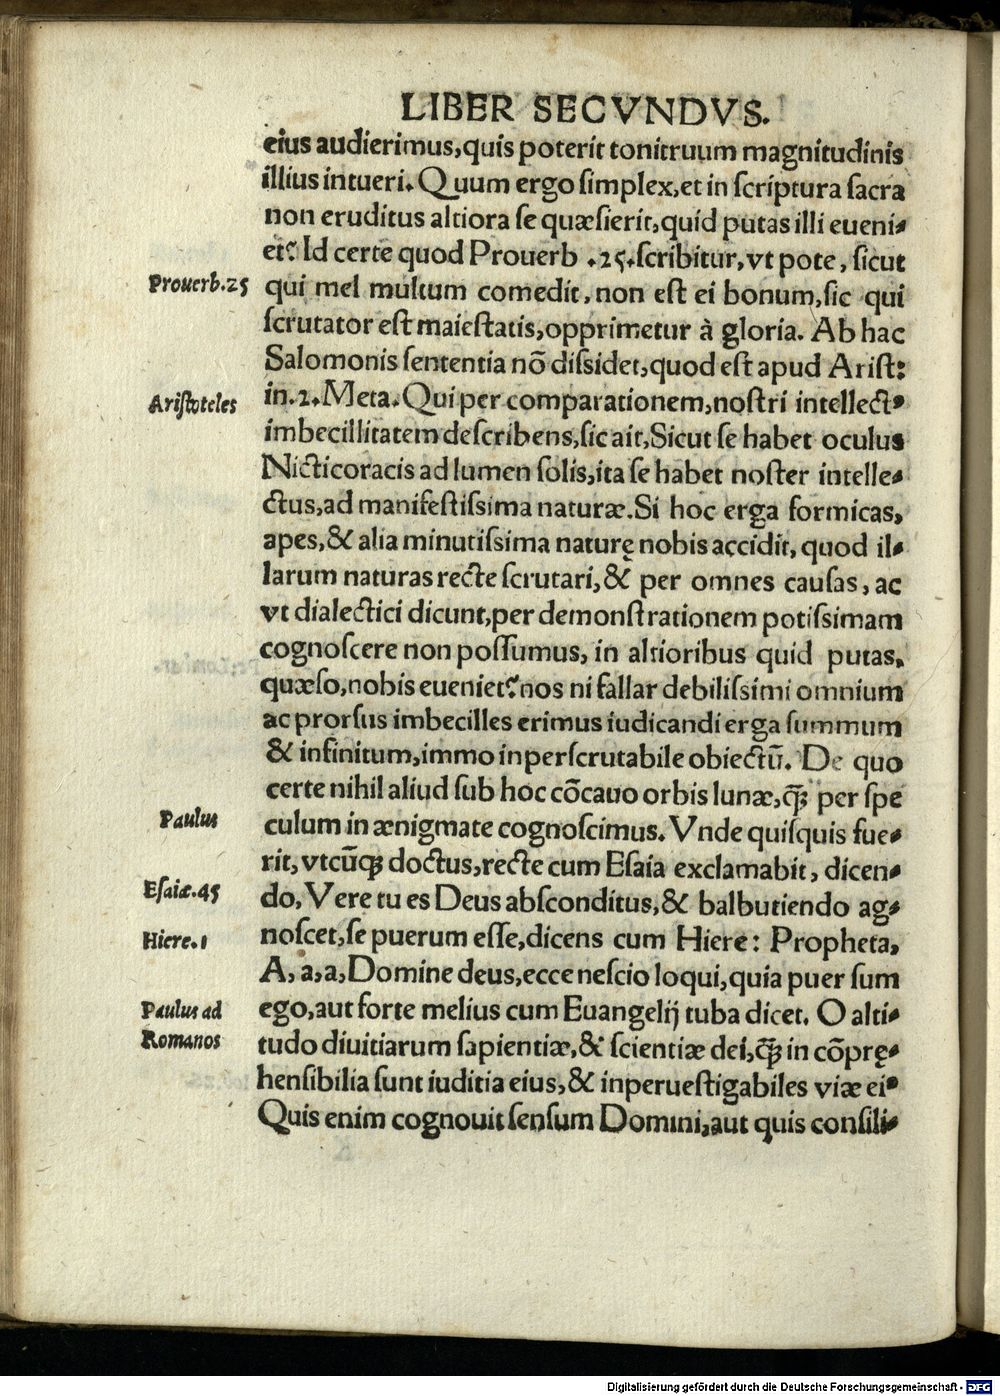 LIBER SECVNDVS.
eius audierimus,quis poterit tonitruum magnitudinis
illius intueri. Quum ergo simplex,et in scriptura sacra
non eruditus altiora se quæsierit,quid putas illi eueni-
et? Id certe quod Prouerb .25.scribitur,vt pote, sicut
Prouerb.25
qui mel multum comedit, non est ei bonum,sic qui
scrutator est maiestatis,opprimetur à gloria. Ab hac
Salomonis sententia nõ dissidet,quod est apud Arist:
in.2.Meta. Qui per comparationem,nostri intellectꝰ
Aristoteles
imbecillitatem describens,sic ait,Sicut se habet oculus
Nicticoracis ad lumen solis,ita se habet noster intelle-
ctus,ad manifestissima naturæ.Si hoc erga formicas,
apes,& alia minutissima naturę nobis accidit, quod il-
larum naturas recte scrutari,& per omnes causas, ac
vt dialectici dicunt,per demonstrationem potissimam
cognoscere non possumus, in altioribus quid putas,
quæso,nobis eueniet?nos ni fallar debilissimi omnium
ac prorsus imbecilles erimus iudicandi erga summum
& infinitum,immo inperscrutabile obiectũ. De quo
certe nihil aliud sub hoc cõcauo orbis lunæ,q̃ꝫ per spe
culum in ænigmate cognoscimus. Vnde quisquis fue-
Paulus
rit,vtcũqꝫ doctus,recte cum Esaia exclamabit, dicen-
do,Vere tu es Deus absconditus,& balbutiendo ag-
Esaiæ.45
noscet,se puerum esse,dicens cum Hiere: Propheta,
Hiere.1
A, a,a,Domine deus,ecce nescio loqui,quia puer sum
ego,aut forte melius cum Euangelij tuba dicet. O alti-
Paulus ad
Romanos
tudo diuitiarum sapientiæ,& scientiæ dei,q̃ꝫ in cõprę-
hensibilia sunt iuditia eius,& inperuestigabiles viæ eiꝰ
Quis enim cognouit sensum Domini,aut quis consili-
Digitalisierung gefördert durch die Deutsche Forschungsgemeinschaft - DFG